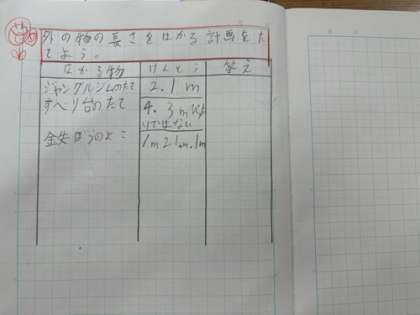 外の物の長さをはかる計画をた
てよう。
はかる物 けんとう 答え
ジャングルジムのたて 2.1m
すべり台のたて 4.3m
ではない
金失ぼうのよこ 1m21